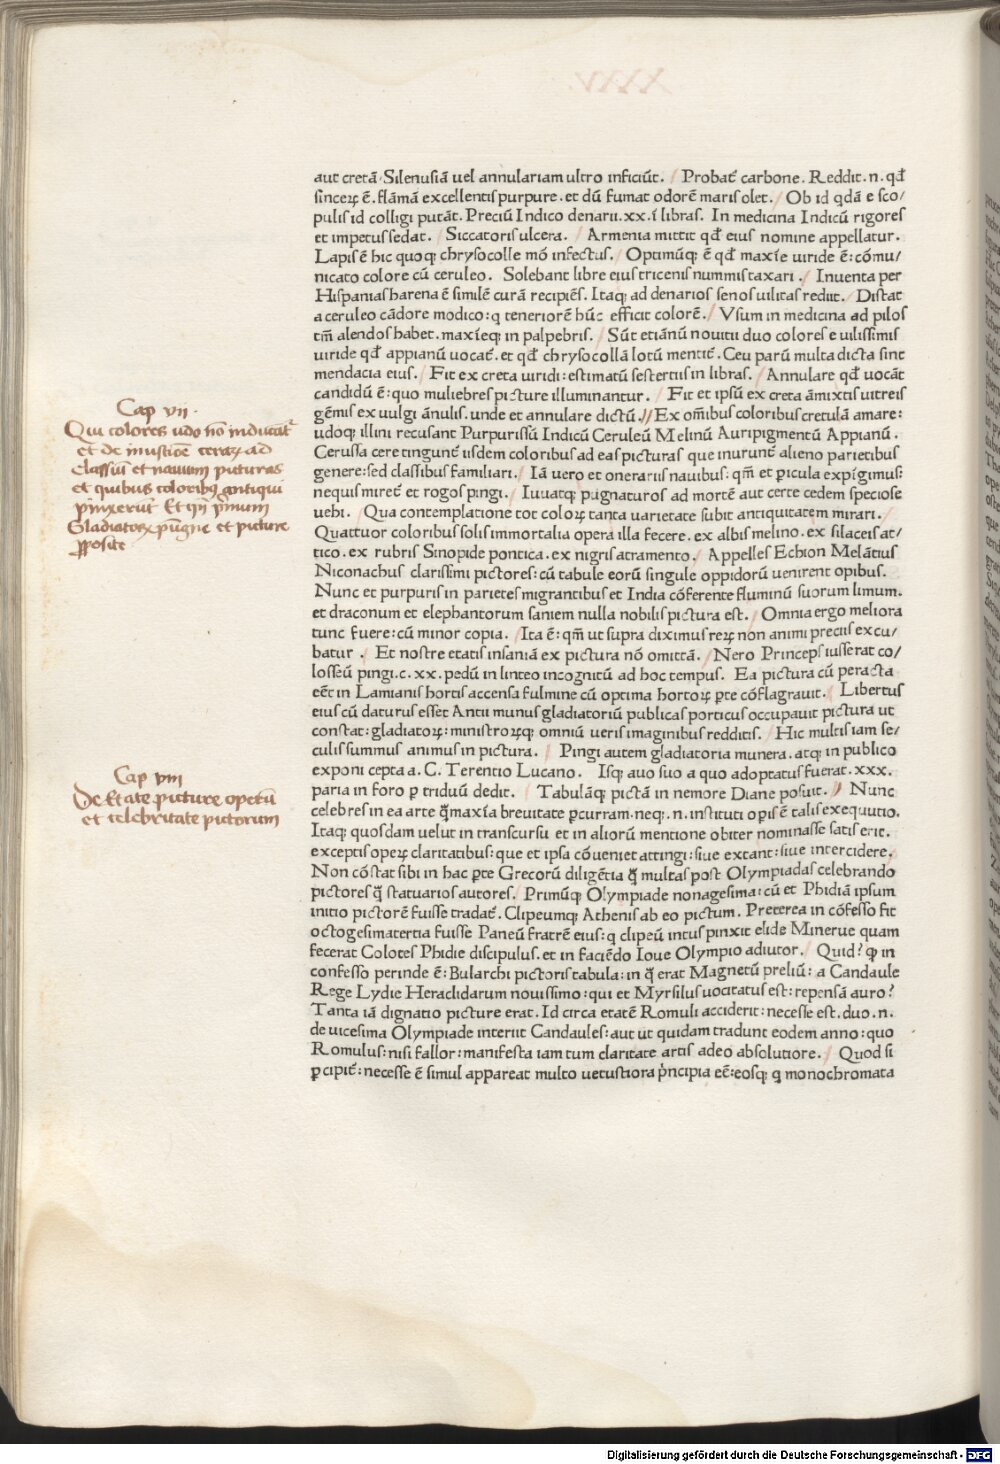 aut cretā Silenusiā uel annulariam ultro inficiūt. / Probat̄ carbone. Reddit. n. qd̄
sinceꝝ ē. flāmā excellentis purpure. et dū fumat odorē maris olet. / Ob id qdā e sco/
pulis id colligi putāt. Preciū Indico denarii. xx. ī libras. In medicina Indicū rigores
et impetus sedat. / Siccat oris ulcera. / Armenia mittit qd̄ eius nomine appellatur.
Lapis ē hic quoqꝫ chrysocolle mō infectus. / Optimūqꝫ ē qd̄ maxīe uiride ē: cōmu/
nicato colore cū ceruleo. Solebant libre eius tricenis nummis taxari. / Inuenta per
Hispanias harena ē similē curā recipiēs. Itaqꝫ ad denarios senos uilitas rediit. / Distat
a ceruleo cādore modico: q teneriorē hūc efficit colorē. / Vsum in medicina ad pilos
tm̄ alendos habet. maxīeqꝫ in palpebris. / Sūt etiānū nouitii duo colores e uilissimis
uiride qd̄ appianū uocat̄. et qd̄ chrysocollā lotū mentit̄. Ceu parū multa dicta sint
mendacia eius. / Fit ex creta uiridi: estimatū sestertiis in libras. / Annulare qd̄ uocāt
candidū ē: quo muliebres picture illuminantur. / Fit et ipsū ex creta āmixtis uitreis
gēmis ex uulgi ānulis. unde et annulare dictū. // Ex om̄ibus coloribus cretulā amare:
udoqꝫ illini recusant Purpurissū Indicū Ceruleū Melinū Auripigmentū Appianū.
Cerussa cere tingunt̄ iisdem coloribus ad eas picturas que inurunt̄ alieno parietibus
genere: sed classibus familiari. / Iā uero et onerariis nauibus: qm̄ et pericula expīgimus:
nequis miret̄ et rogos pingi. / Iuuatqꝫ pugnaturos ad mortē aut certe cedem speciose
uehi. / Qua contemplatione tot coloꝝ tanta uarietate subit antiquitatem mirari. /
Quattuor coloribus solis immortalia opera illa fecere. ex albis melino. ex silaceis at/
tico. ex rubris Sinopide pontica. ex nigris atramento. / Appelles Echion Melātius
Niconachus clarissimi pictores: cū tabule eorū singule oppidorū uenirent opibus.
Nunc et purpuris in parietes migrantibus et India cōferente fluminū suorum limum.
et draconum et elephantorum saniem nulla nobilis pictura est. / Omnia ergo meliora
tunc fuere: cū minor copia. / Ita ē: qm̄ ut supra diximus reꝝ non animi preciis excu/
batur. / Et nostre etatis insaniā ex pictura nō omittā. / Nero Princeps iusserat co/
losseū pingi. c. xx. pedū in linteo incognitū ad hoc tempus. Ea pictura cū peracta
eēt in Lamianis hortis accensa fulmine cū optima hortoꝝ ꝑte cōflagrauit. / Libertus
eius cū daturus esset Antii munus gladiatoriū publicas porticus occupauit pictura ut
constat: gladiatoꝝ: ministroꝝqꝫ omniū ueris imaginibus redditis. / Hic multis iam se/
culis summus animus in pictura. / Pingi autem gladiatoria munera. atqꝫ in publico
exponi cepta a. C. Terentio Lucano. Isqꝫ auo suo a quo adoptatus fuerat. xxx.
paria in foro ꝑ triduū dedit. / Tabulāqꝫ pictā in nemore Diane posuit. // Nunc
celebres in ea arte q̄maxīa breuitate ꝑcurram. neqꝫ. n. instituti opis ē talis exequutio.
Itaqꝫ quosdam uelut in transcursu et in aliorū mentione obiter nominasse satis erit.
exceptis operꝝ claritatibus: que et ipsa cōueniet attingi: siue extant: siue intercidere.
Non cōstat sibi in hac ꝑte Grecorū diligētia q̄ multas post Olympiadas celebrando
pictores q̄ statuarios autores. / Primūqꝫ Olympiade nonagesima: cū et Phidiā ipsum
initio pictorē fuisse tradat̄. Clipeumqꝫ Athenis ab eo pictum. Preterea in cōfesso fit
octogesimatertia fuisse Paneū fratrē eius: q clipeū intus pinxit elide Minerue quam
fecerat Colotes Phidie discipulus. et in faciēdo Ioue Olympio adiutor. / Quid? ꝙ in
confesso perinde ē: Bularchi pictoris tabula: in q̄ erat Magnetū preliū: a Candaule
Rege Lydie Heraclidarum nouissimo: qui et Myrsilus uocitatus est: repensā auro?
Tanta iā dignatio picture erat. Id circa etatē Romuli acciderit: necesse est. duo. n.
de uicesima Olympiade interiit Candaules: aut ut quidam tradunt eodem anno: quo
Romulus: nisi fallor: manifesta iam tum claritate artis adeo absolutiore. / Quod si
ꝑcipit̄: necesse ē simul appareat multo uetustiora pͥncipia eē: eosqꝫ q monochromata
Cap vii.
Qui colores udo nō inducāt̄
et de inustiōe ceraꝝ ad
classiū et nauium picturas
et quibus coloribꝰ antiqui
pinxerūt Et qn̄ pͥmum
Gladiatoꝝ pugne et picture
ꝓposite
Cap viii
De Etate picture operū
et celebritate pictorum
Digitalisierung gefördert durch die Deutsche Forschungsgemeinschaft - DFG